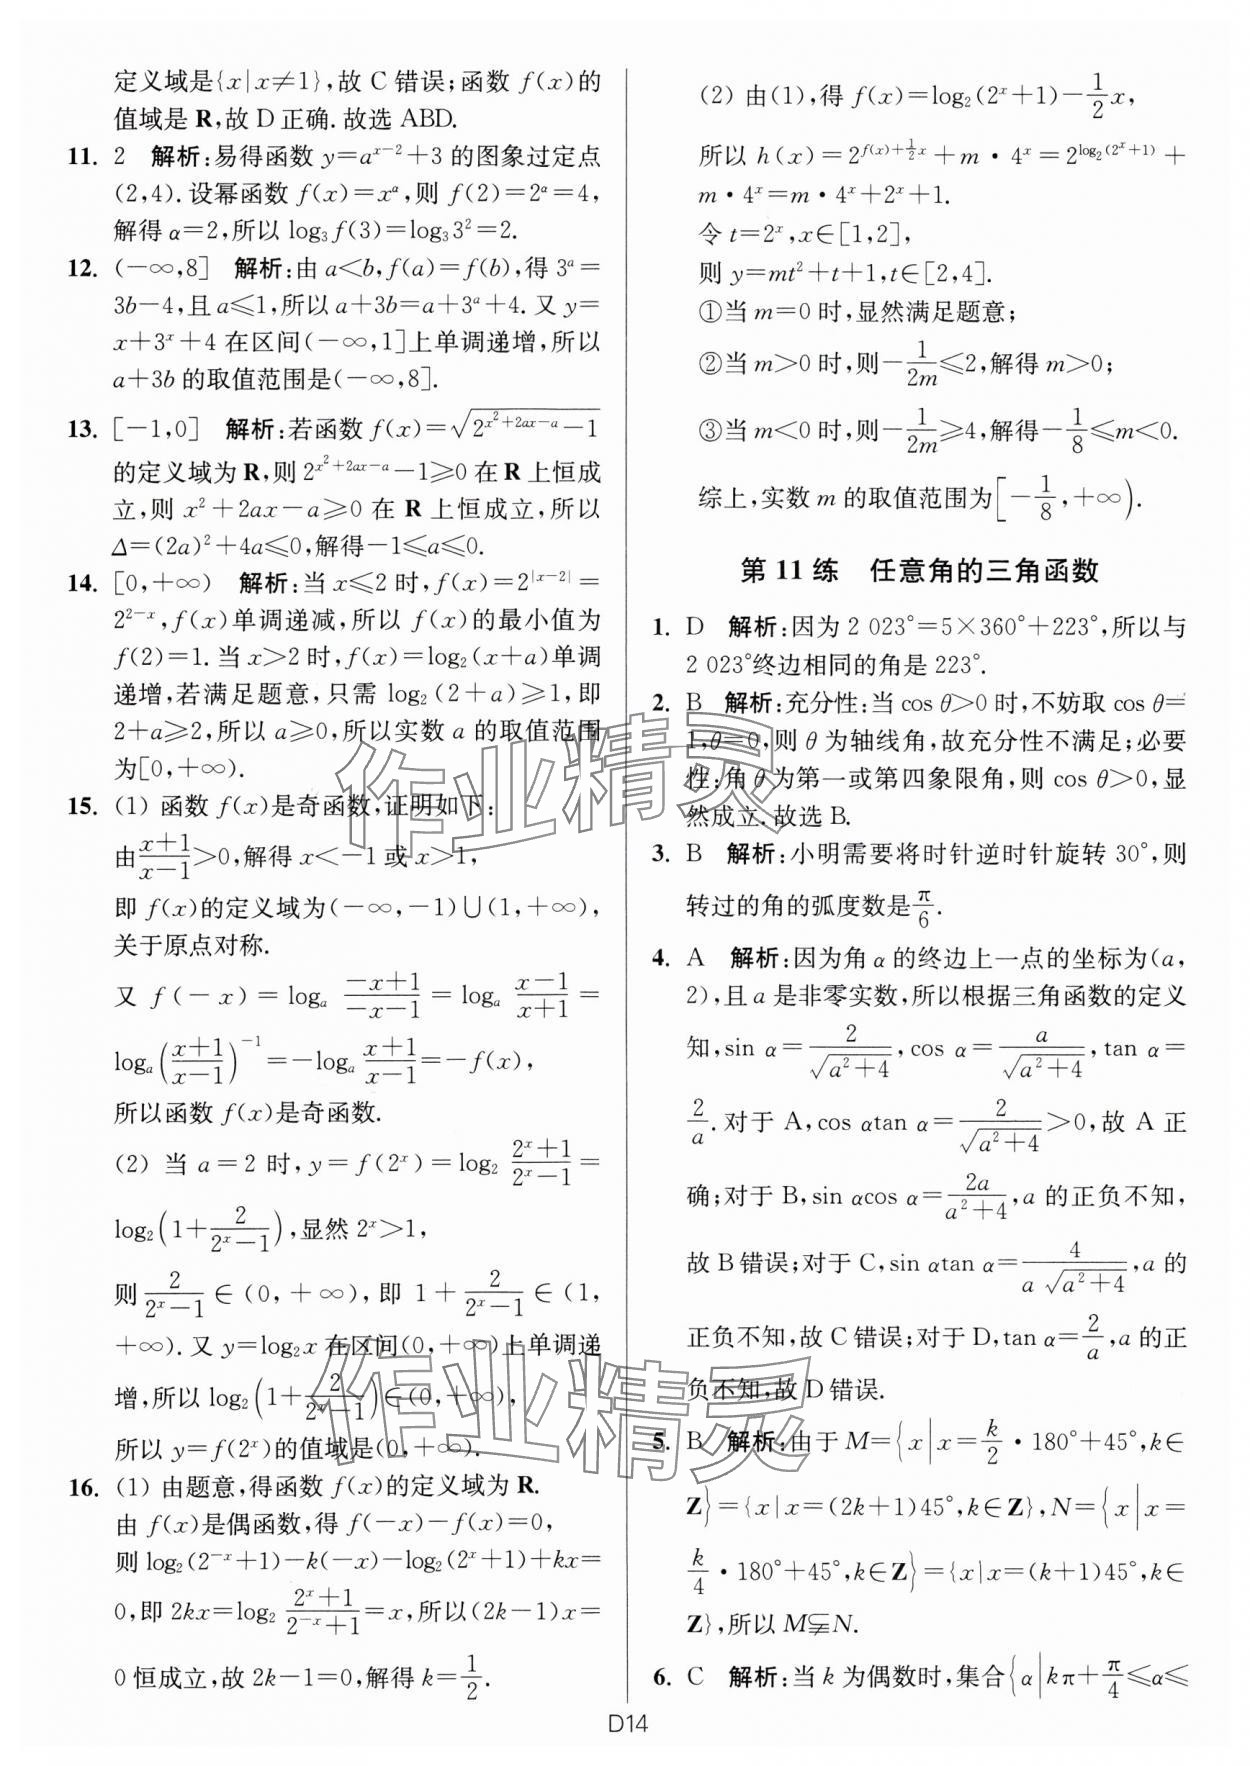 定义域是{x|x≠1},故 C 错误;函数 f(x)的
值域是 R,故 D 正确.故选 ABD.
11. 2 解析:易得函数 y=a^{x-2}+3 的图象过定点
(2,4).设幂函数 f(x)=x^α,则 f(2)=2^α=4,
解得 α=2,所以 log₃f(3)=log₃3²=2.
12. (-∞,8] 解析:由 a<b,f(a)=f(b),得 3^a=
3b-4,且 a≤1,所以 a+3b=a+3^a+4.又 y=
x+3^x+4 在区间(-∞,1]上单调递增,所以
a+3b 的取值范围是(-∞,8].
13. [-1,0] 解析:若函数 f(x)=√(2^{x²+2ax-a}-1)
的定义域为 R,则 2^{x²+2ax-a}-1≥0 在 R 上恒成
立,则 x²+2ax-a≥0 在 R 上恒成立,所以
Δ=(2a)²+4a≤0,解得-1≤a≤0.
14. [0,+∞) 解析:当 x≤2 时,f(x)=2^{|x-2|}=
2^{2-x},f(x)单调递减,所以 f(x)的最小值为
f(2)=1.当 x>2 时,f(x)=log₂(x+a)单调
递增,若满足题意,只需 log₂(2+a)≥1,即
2+a≥2,所以 a≥0,所以实数 a 的取值范围
为[0,+∞).
15. (1) 函数 f(x)是奇函数,证明如下:
由\frac{x+1}{x-1}>0,解得 x<-1 或 x>1,
即 f(x)的定义域为(-∞,-1)∪(1,+∞),
关于原点对称.
又 f(-x)=log_a \frac{-x+1}{-x-1}=log_a \frac{x-1}{x+1}=
log_a(\frac{x+1}{x-1})^{-1}=-log_a \frac{x+1}{x-1}=-f(x),
所以函数 f(x)是奇函数.
(2) 当 a=2 时,y=f(2^x)=log₂ \frac{2^x+1}{2^x-1}=
log₂(1+\frac{2}{2^x-1}),显然 2^x>1,
则\frac{2}{2^x-1}∈(0,+∞),即 1+\frac{2}{2^x-1}∈(1,
+∞).又 y=log₂x 在区间(0,+∞)上单调递
增,所以 log₂(1+\frac{2}{2^x-1})∈(0,+∞),
所以 y=f(2^x)的值域是(0,+∞).
16. (1) 由题意,得函数 f(x)的定义域为 R.
由 f(x)是偶函数,得 f(-x)-f(x)=0,
则 log₂(2^{-x}+1)-k(-x)-log₂(2^x+1)+kx=
0,即 2kx=log₂ \frac{2^x+1}{2^{-x}+1}=x,所以(2k-1)x=
0 恒成立,故 2k-1=0,解得 k=\frac{1}{2}.
(2) 由(1),得 f(x)=log₂(2^x+1)-\frac{1}{2}x,
所以 h(x)=2^{f(x)+\frac{1}{2}x}+m·4^x=2^{log₂(2^x+1)}+
m·4^x=m·4^x+2^x+1.
令 t=2^x,x∈[1,2],
则 y=mt²+t+1,t∈[2,4].
①当 m=0 时,显然满足题意;
②当 m>0 时,则-\frac{1}{2m}≤2,解得 m>0;
③当 m<0 时,则-\frac{1}{2m}≥4,解得-\frac{1}{8}≤m<0.
综上,实数 m 的取值范围为[-\frac{1}{8},+∞).
第 11 练 任意角的三角函数
1. D 解析:因为 2 023°=5×360°+223°,所以与
2 023°终边相同的角是 223°.
2. B 解析:充分性:当 cos θ>0 时,不妨取 cos θ=
1,θ=0,则 θ 为轴线角,故充分性不满足;必要
性:角 θ 为第一或第四象限角,则 cos θ>0,显
然成立.故选 B.
3. B 解析:小明需要将时针逆时针旋转 30°,则
转过的角的弧度数是\frac{π}{6}.
4. A 解析:因为角 α 的终边上一点的坐标为(a,
2),且 a 是非零实数,所以根据三角函数的定义
知,sin α=\frac{2}{√(a²+4)},cos α=\frac{a}{√(a²+4)},tan α=
\frac{2}{a}.对于 A,cos αtan α=\frac{2}{√(a²+4)}>0,故 A 正
确;对于 B,sin αcos α=\frac{2a}{a²+4},a 的正负不知,
故 B 错误;对于 C,sin αtan α=\frac{4}{a√(a²+4)},a 的
正负不知,故 C 错误;对于 D,tan α=\frac{2}{a},a 的正
负不知,故 D 错误.
5. B 解析:由于 M={x|x=\frac{k}{2}·180°+45°,k∈
Z}={x|x=(2k+1)45°,k∈Z},N={x|x=
\frac{k}{4}·180°+45°,k∈Z}={x|x=(k+1)45°,k∈
Z},所以 M⫋N.
6. C 解析:当 k 为偶数时,集合{α|kπ+\frac{π}{4}≤α≤
D14
作业精灵
作业精灵